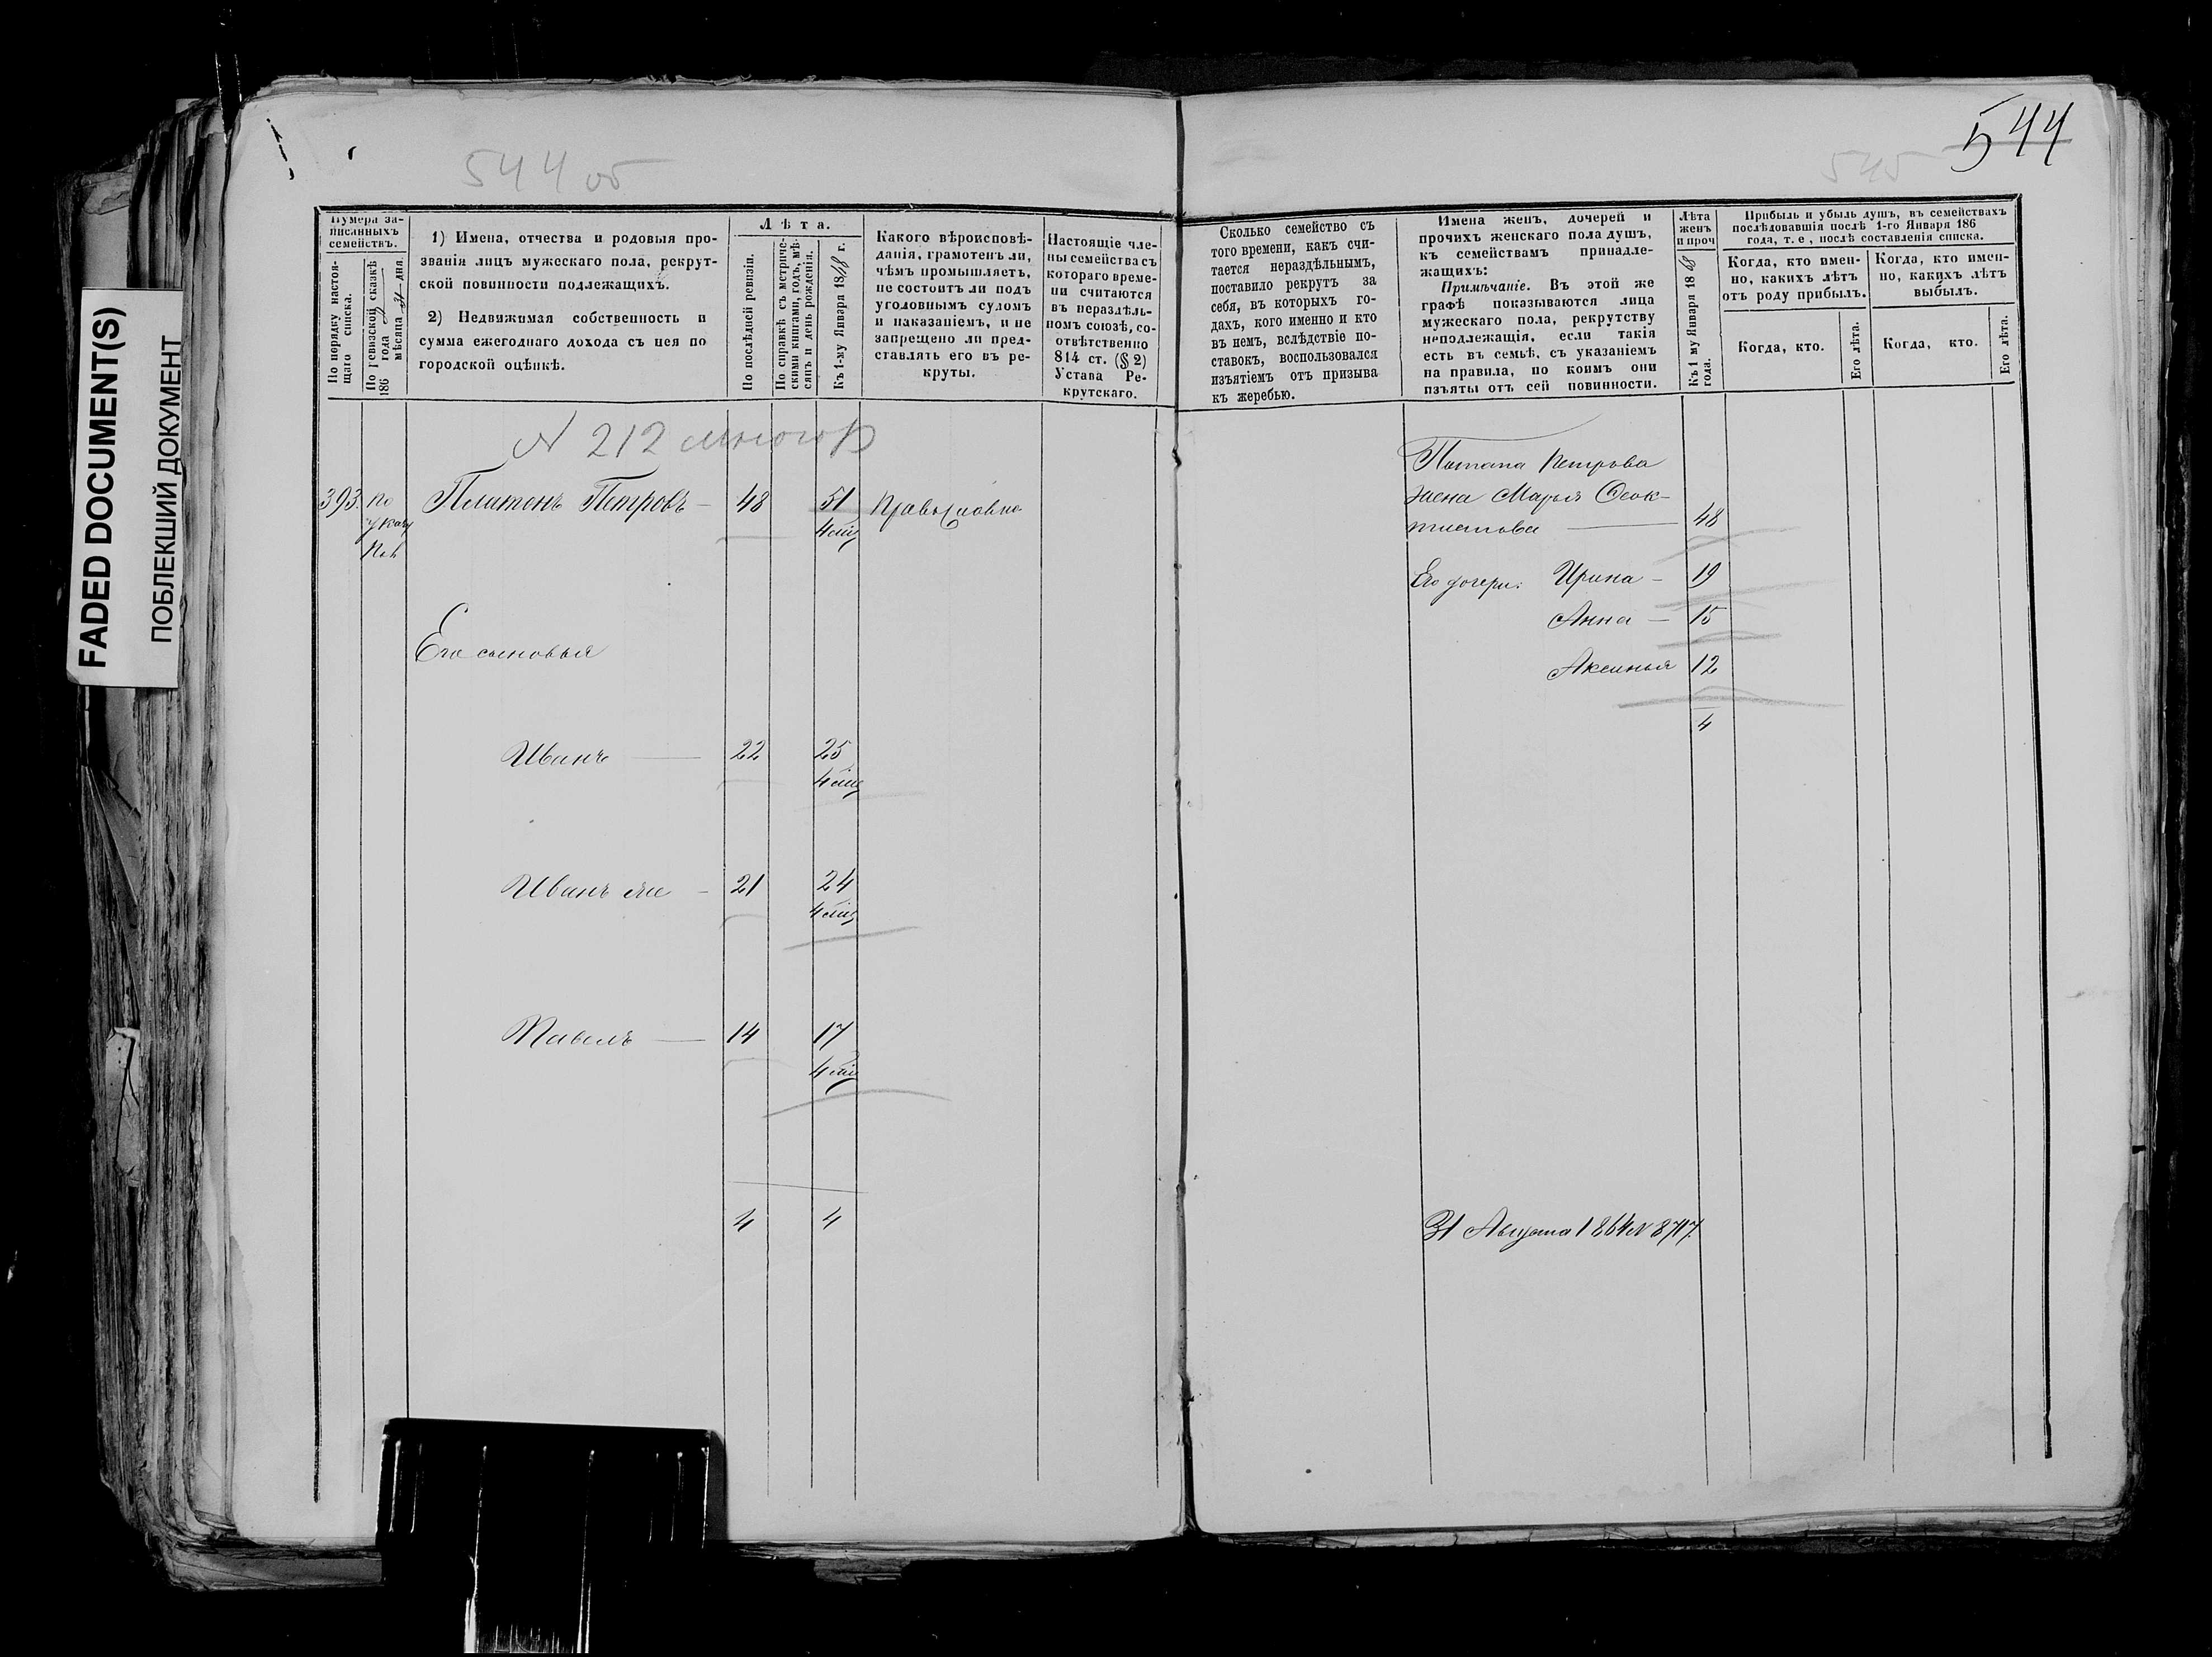 FADED DOCUMENT(S)
ПОБЛЕКШИЙ ДОКУМЕНТ
544 об
Нумера за-
писанныхъ
семействъ.
По порядку настоя-
щаго списка.
По ревизской сказкѣ
186 года мѣсяца 31 дня.
1) Имена, отчества и родовыя про-
званія лицъ мужескаго пола, рекрут-
ской повинности подлежащихъ.
2) Недвижимая собственность и
сумма ежегоднаго дохода съ нея по
городской оцѣнкѣ.
Лѣта.
По послѣдней ревизіи.
По справкѣ съ метриче-
скими книгами, годъ, мѣ-
сяцъ и день рожденія.
Къ 1-му Января 18 г.
Какого вѣроисповѣ-
данія, грамотенъ ли,
чѣмъ промышляетъ,
не состоитъ ли подъ
уголовнымъ судомъ
и наказаніемъ, и не
запрещено ли пред-
ставлять его въ ре-
круты.
Настоящіе чле-
ны семейства съ
котораго време-
ни считаются
въ нераздѣль-
номъ союзѣ, со-
отвѣтственно
814 ст. (§ 2)
Устава Ре-
крутскаго.
N 212
393. по
указу
Платонъ Петровъ — 48 51
Православно
Его сыновья
Иванъ — 22 25
Иванъ же - 21 24
Павелъ — 14 17
4 4
544
545
Сколько семейство съ
того времени, какъ счи-
тается нераздѣльнымъ,
поставило рекрутъ за
себя, въ которыхъ го-
дахъ, кого именно и кто
въ немъ, вслѣдствіе по-
ставокъ, воспользовался
изъятіемъ отъ призыва
къ жеребью.
Имена женъ, дочерей и
прочихъ женскаго пола душъ,
къ семействамъ принадле-
жащихъ:
Примѣчаніе. Въ этой же
графѣ показываются лица
мужескаго пола, рекрутству
неподлежащія, если такія
есть въ семьѣ, съ указаніемъ
на правила, по коимъ они
изъяты отъ сей повинности.
Лѣта
женъ
и проч
Къ 1 му Января 18
года.
Прибыль и убыль душъ, въ семействахъ
послѣдовавшія послѣ 1-го Января 186
года, т. е , послѣ составленія списка.
Когда, кто имен-
но, какихъ лѣтъ
отъ роду прибылъ.
Когда, кто имен-
но, какихъ лѣтъ
выбылъ.
Когда, кто.
Его лѣта.
Когда, кто.
Его лѣта.
Петрова
жена Марья Феок-
тистова — 48
Его дочери: Ирина - 19
Анна — 15
Аксинья 12
4
31 Августа 1864 N 8717.